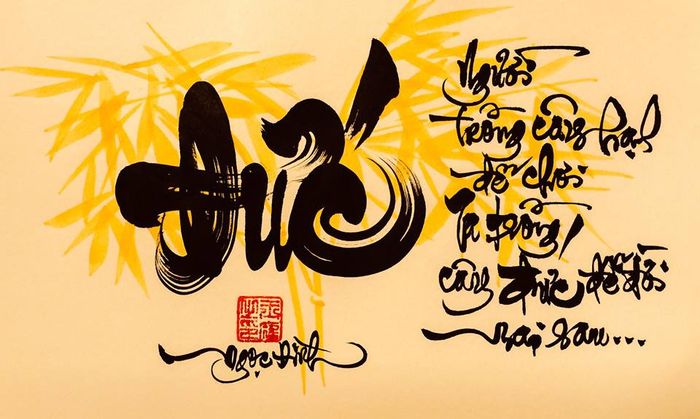 Đức
Người
trồng cây hạnh
để chơi
Ta trồng
cây đức để đời
mai sau...
Ngọc Đình